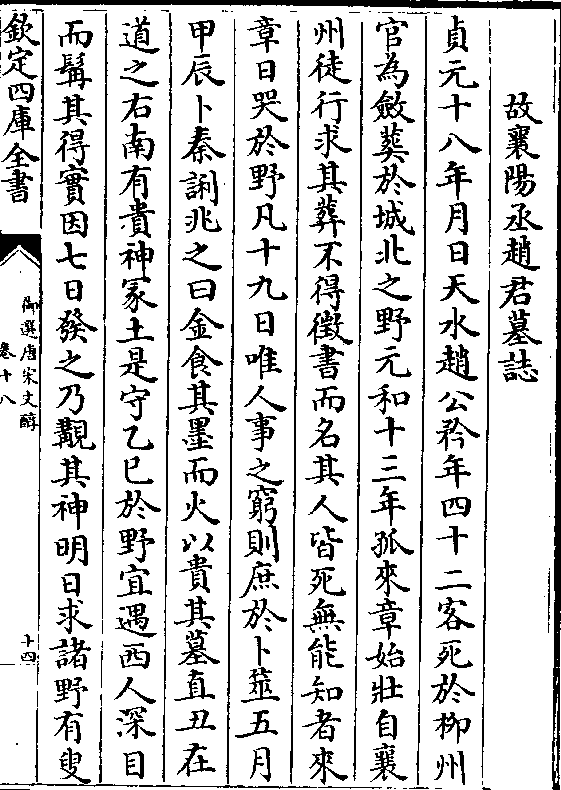 故襄陽丞趙君墓誌
貞元十八年月日天水趙公矜年四十二客死於柳州
官為斂葬於城北之野元和十三年孤來章始壯自襄
州徒行求其葬不得徴書而名其人皆死無能知者來
章日哭於野凡十九日唯人事之窮則庶於卜筮五月
甲辰卜秦誗兆之曰金食其墨而火以貴其墓直丑在
道之右南有貴神冢土是守乙巳於野宜遇西人深目
而髯其得實因七日發之乃覯其神明日求諸野有叟
欽定四庫全書
御選唐宋文醇
卷十八
十四